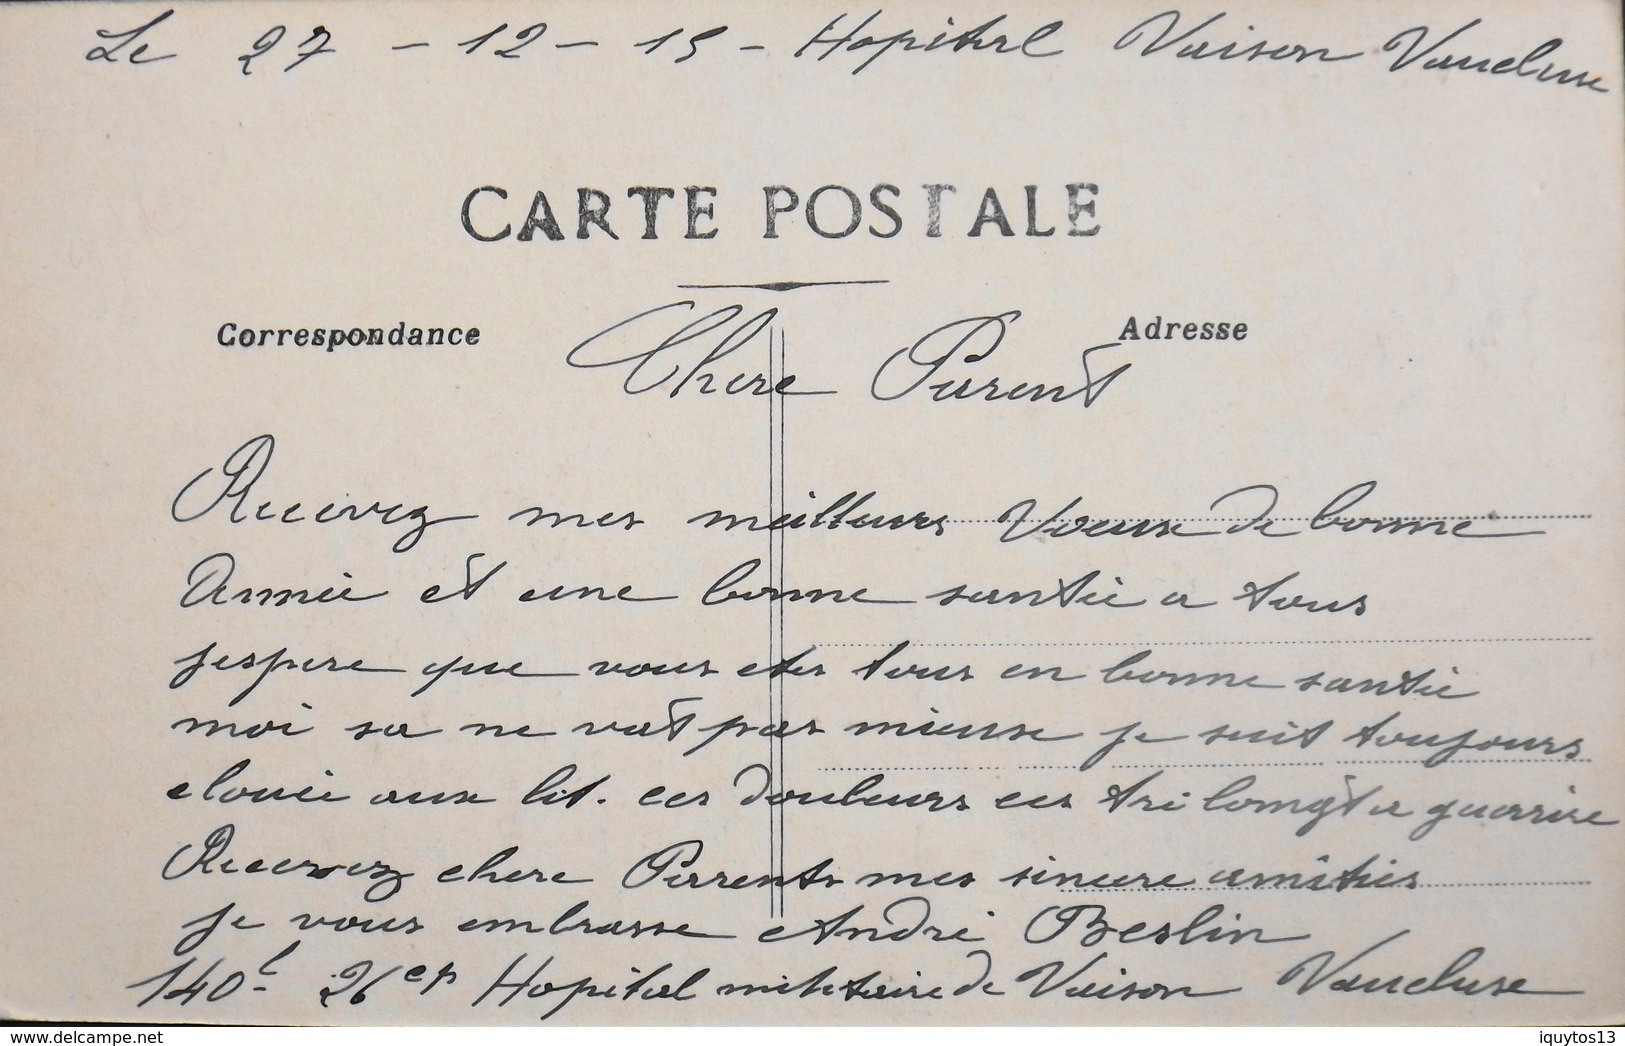 Le 27 - 12 - 15 - Hopital Vaison Vaucluse
CARTE POSTALE
Correspondance
Adresse
Chere Parent
Recevez mes meilleurs Voeux de bonne
Année et une bonne santée a tous
jespere que vous etes tous en bonne santée
moi sa ne vat pas mieuse je suit toujours
clouée aux lit. ces douleurs ces tré longt a guerrire
Recevez chere Parrents mes sincere amîtiés
je vous embrasse André Beslin
140e 26 ep Hopital militaire de Vaison Vaucluse
www.delcampe.net
iquytos13